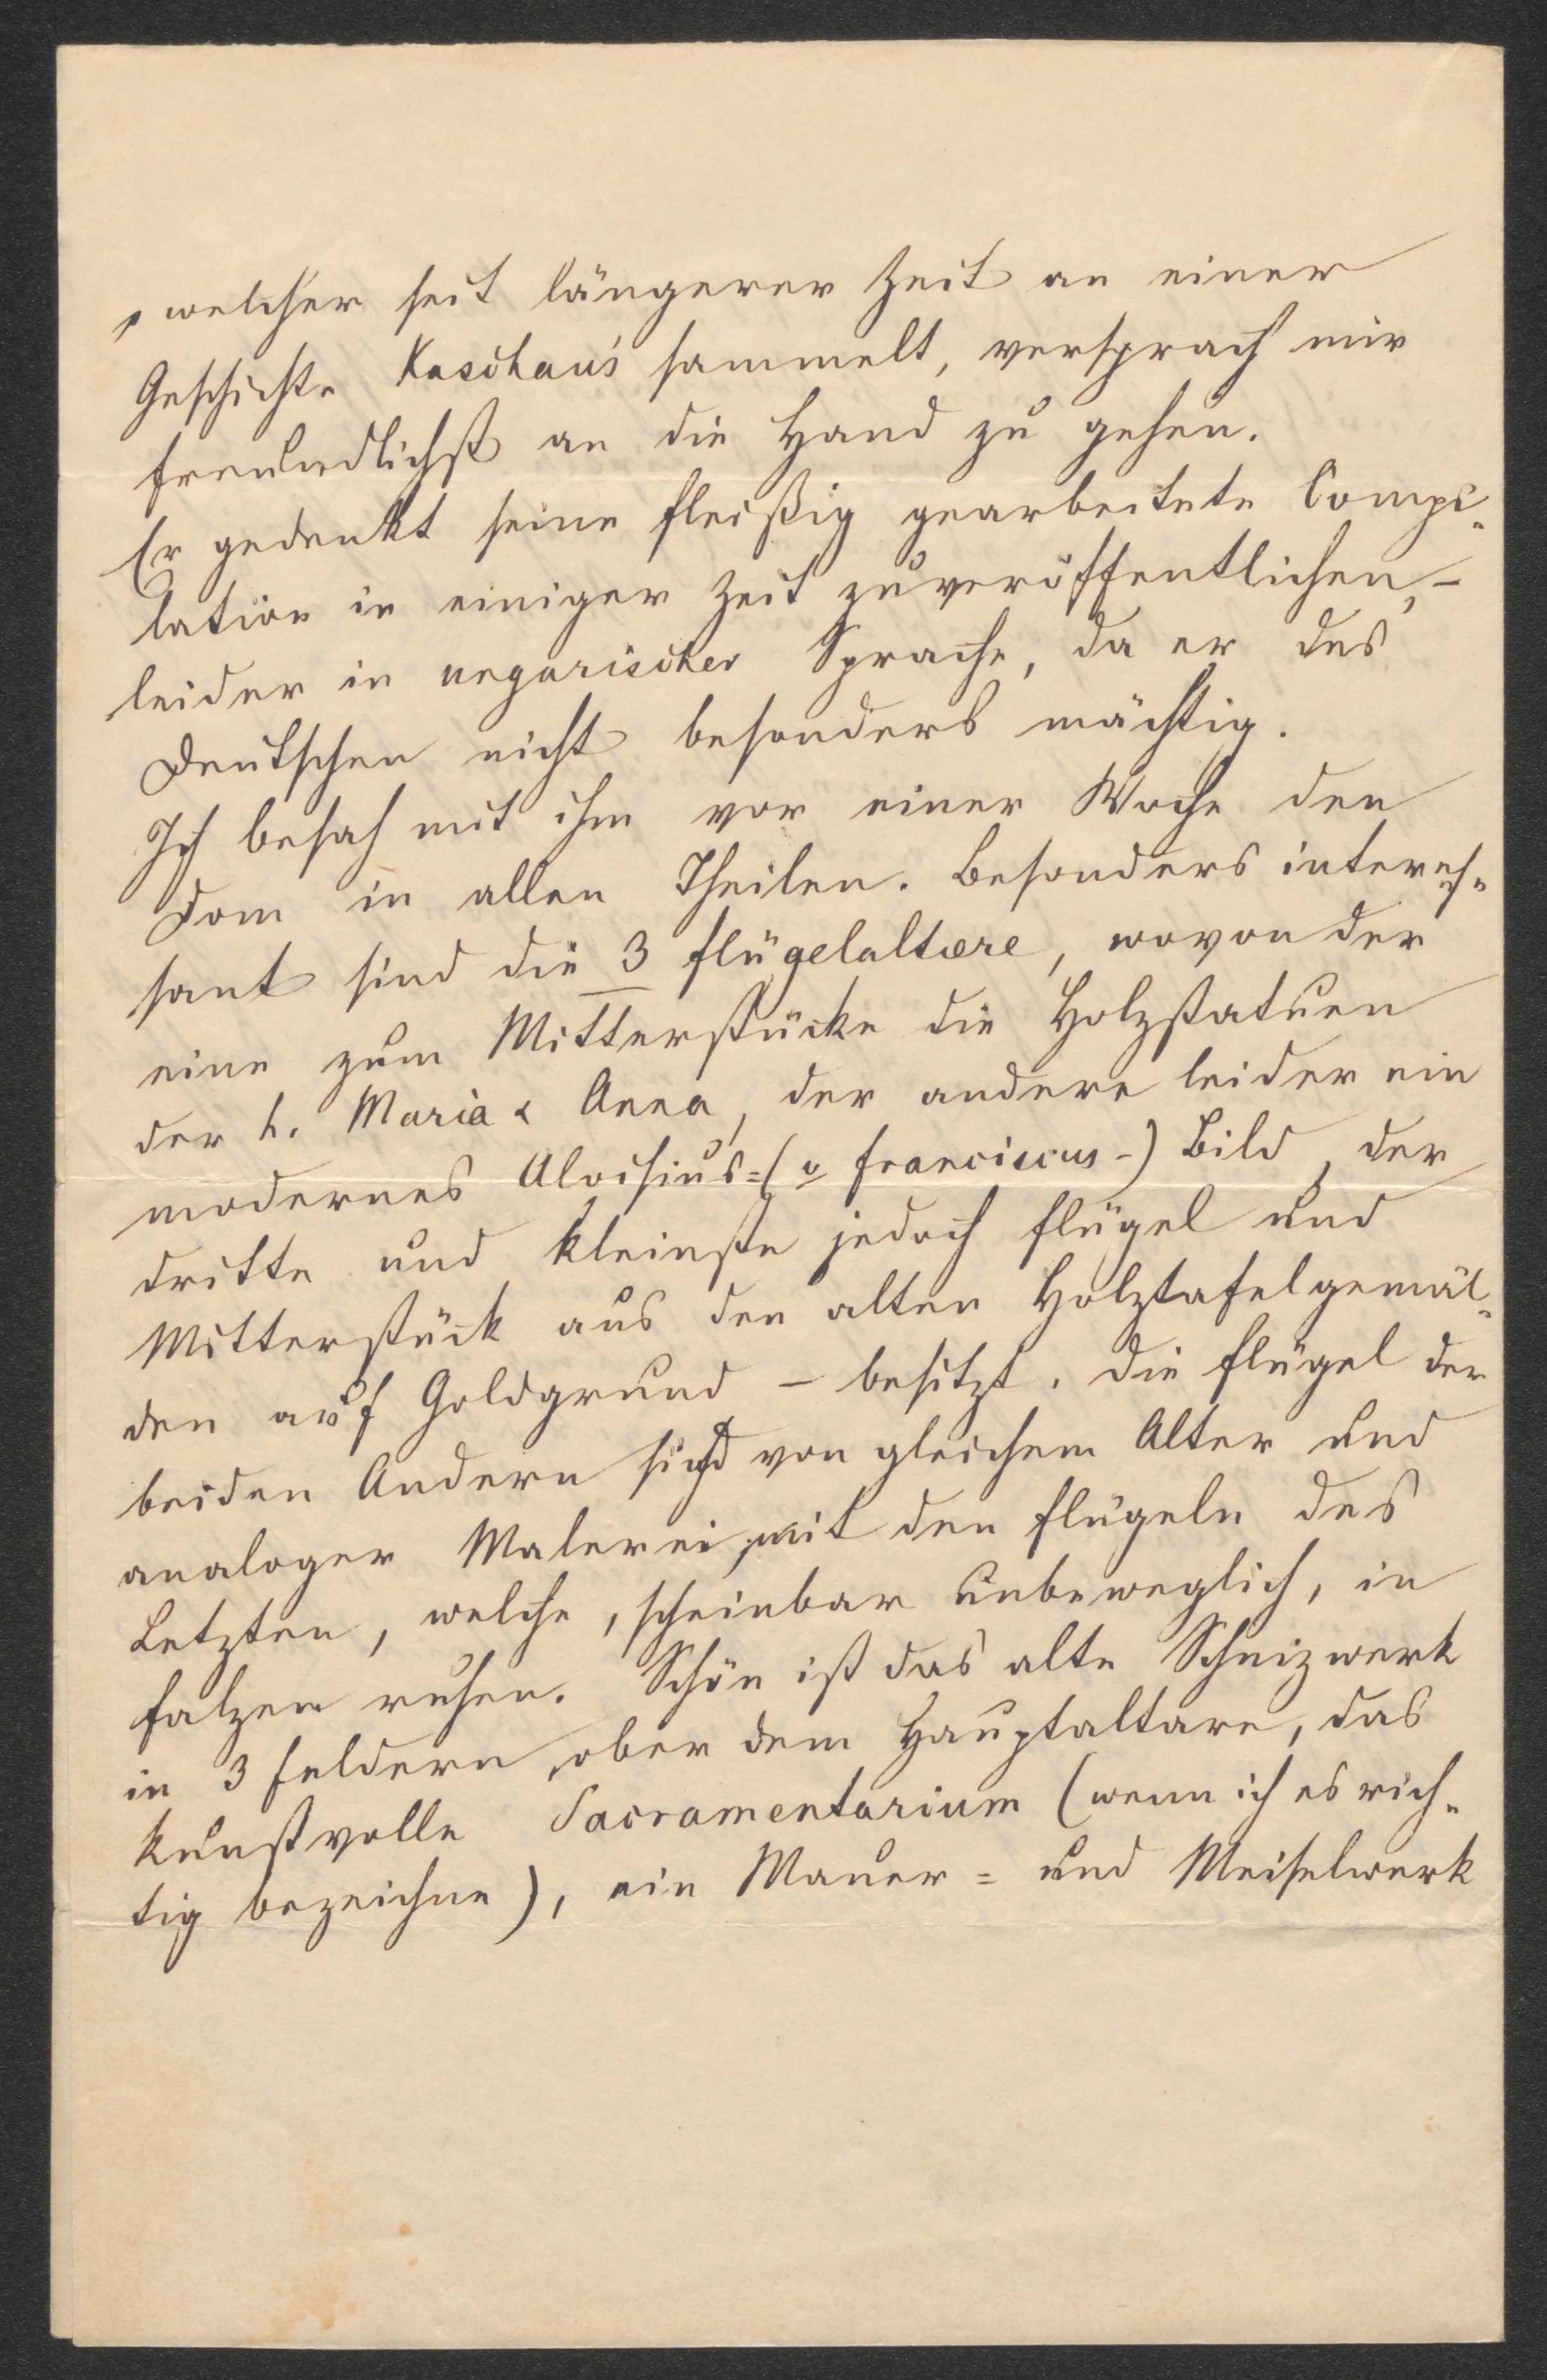 , welcher seit längerer Zeit an einer
Geschichte Kaschau's sammelt, versprach mir
freundlichst an die Hand zu gehen.
Er gedenkt seine fleißig gearbeitete Compi-
lation in einiger Zeit zu veröffentlichen, –
leider in ungarischer Sprache, da er des
Deutschen nicht besonders mächtig.
Ich besah mit ihm vor einer Woche den
Dom in allen Theilen. Besonders interes-
sant sind die 3 Flügelaltære, wovon der
eine zum Mitterstücke die Holzstatuen
der h. Maria & Anna, der andere leider ein
modernes Aloisius=(o Franciscus-) Bild, der
dritte und kleinste jedoch Flügel und
Mitterstück aus den alten Holztafelgemäl-
den auf Goldgrund – besitzt. Die Flügel der
beiden Andern sind von gleichem Alter und
analoger Malerei mit den Flügeln des
Letzten, welche, scheinbar unbeweglich, in
Falzen ruhen. Schön ist das alte Schnizwerk
in 3 Feldern ober dem Hauptaltare, das
kunstvolle Sacramentarium (wenn ich es rich-
tig bezeichne), ein Mauer= und Meiselwerk